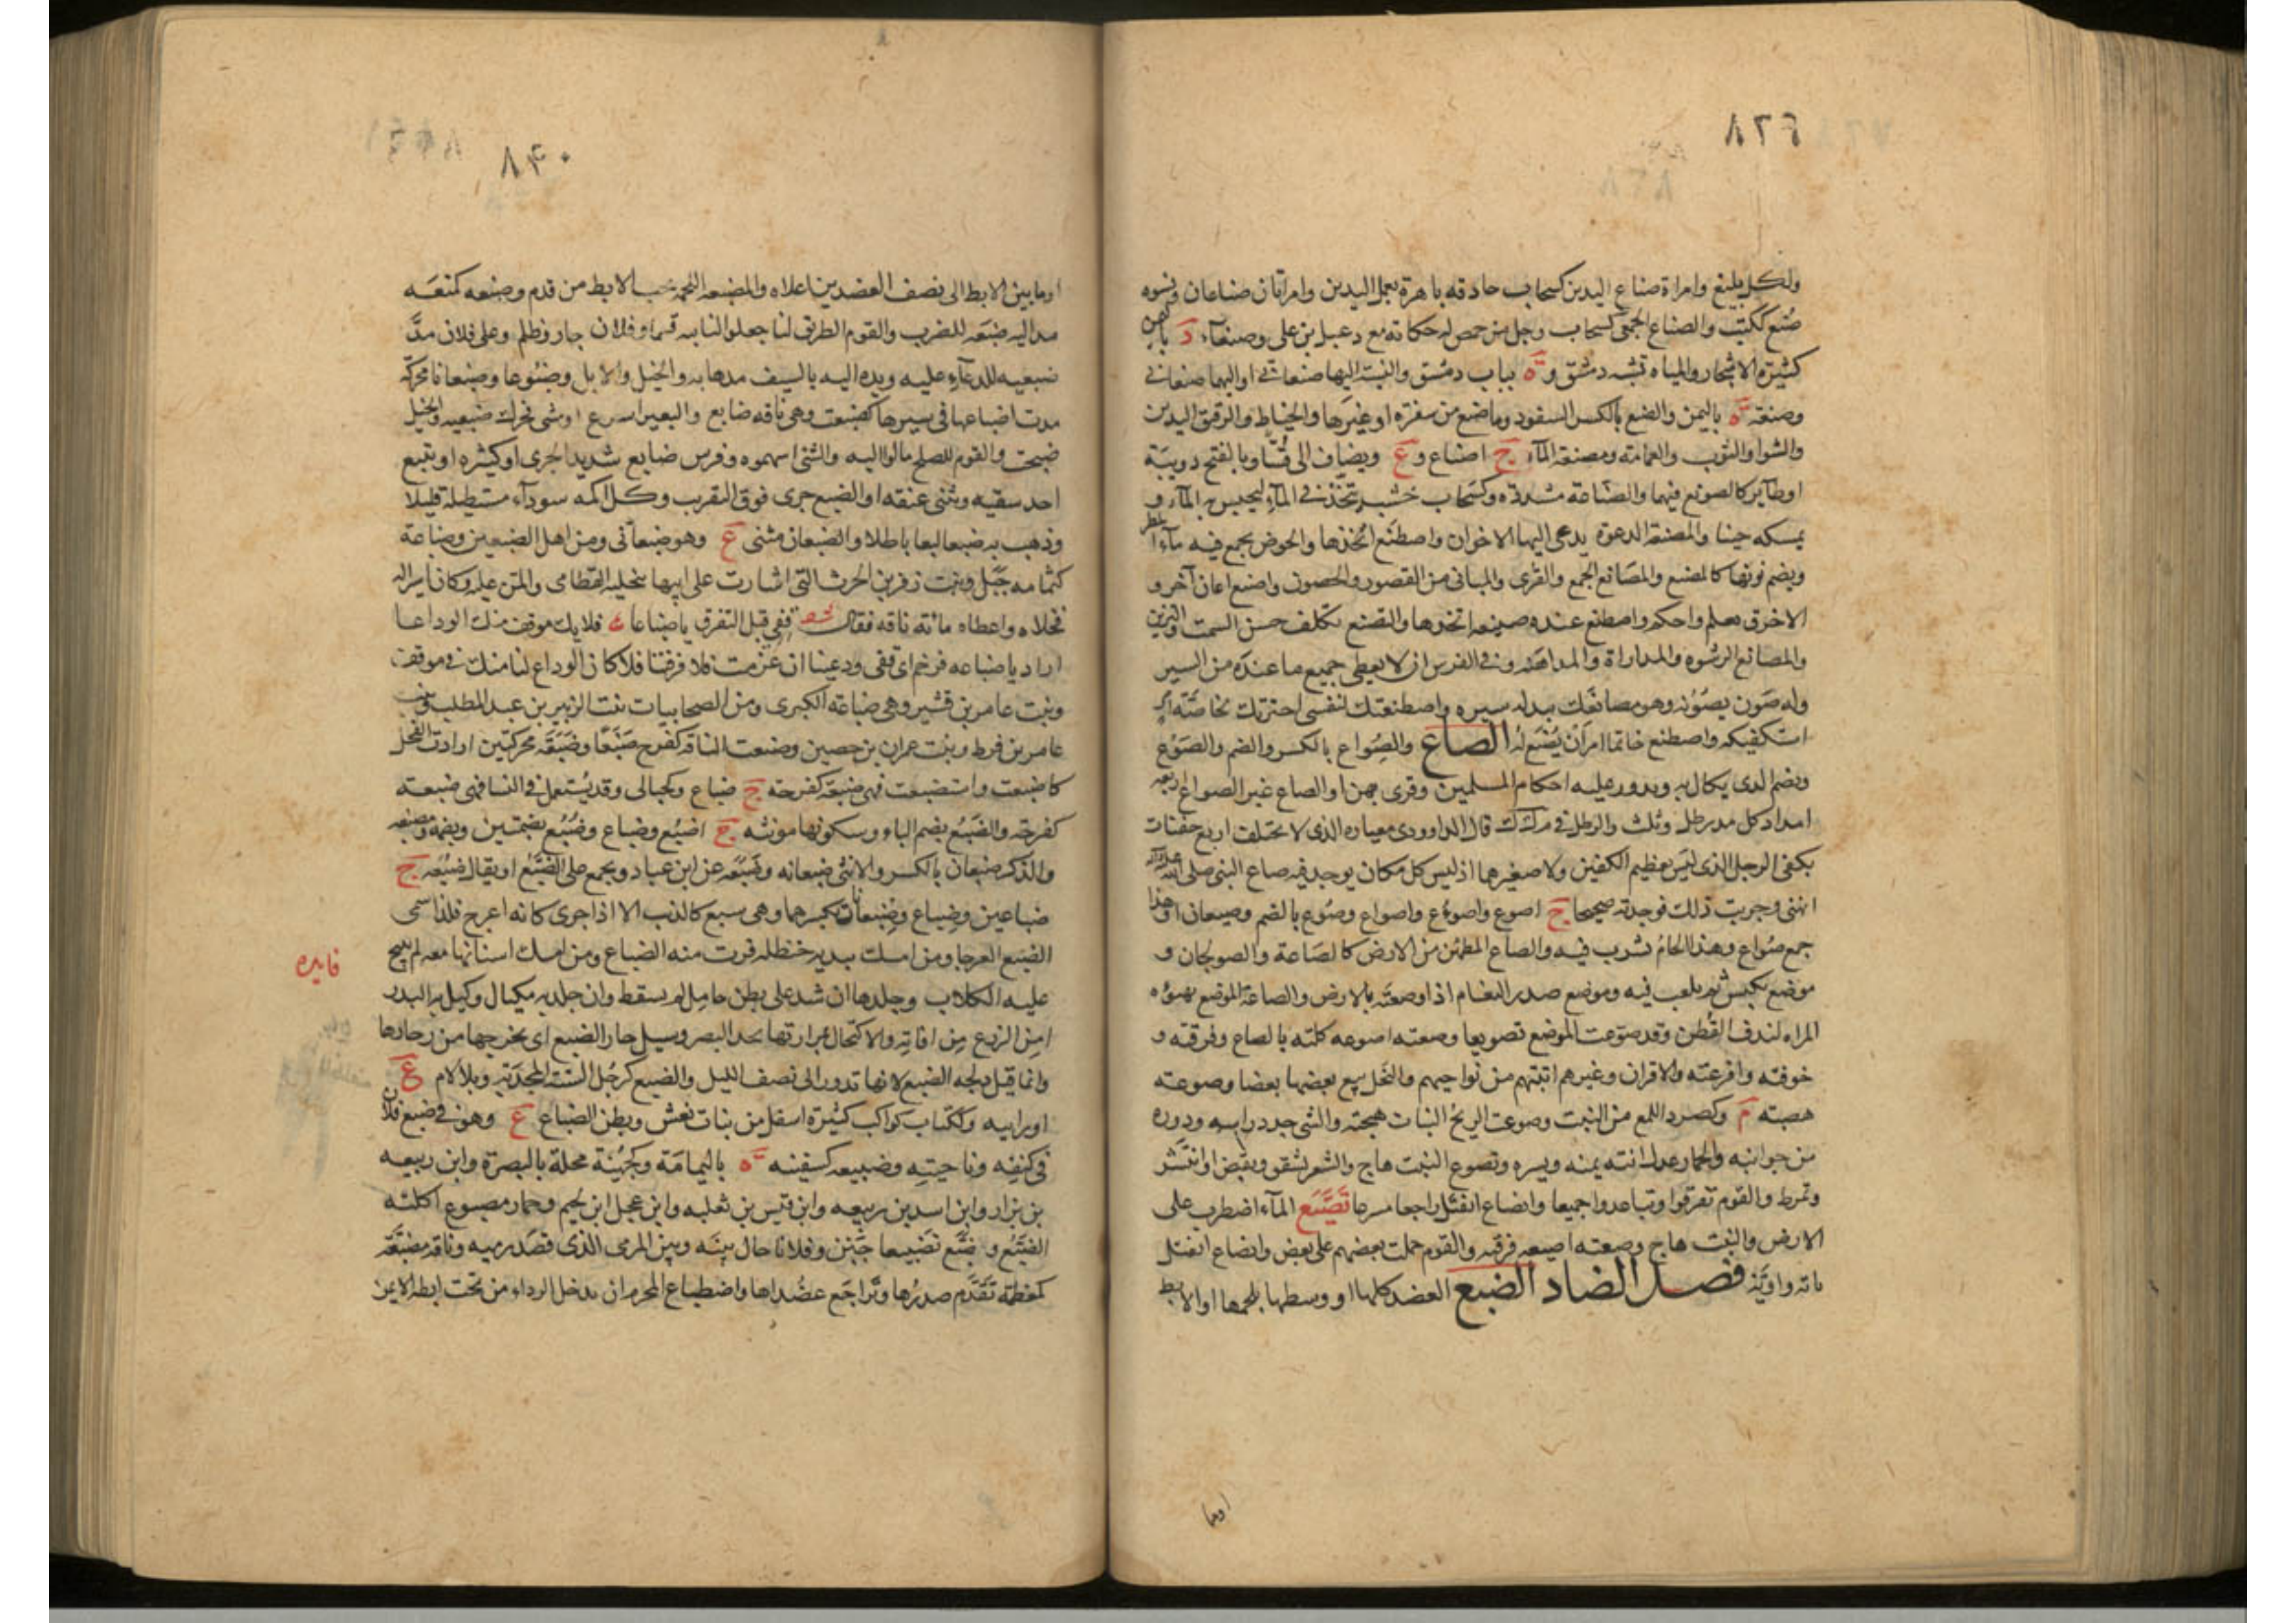 ٨٣٩
ولكل بليغ وامراة صناع اليدين كسحاب حاذقه ماهرة بعمل اليدين وامراتان صناعان ونسوه
صُنُع ككتب والصناع الجمعى كسحاب رجل من حمص له حكاية مع دعبل بن على وصنعآء د باليمن
كثيرة الاشجار والمياه تشبه دمشق وة بباب دمشق والنسبة اليها صنعانى او اليهما صنعانى
وصنعة ة باليمن والصنع بالكسر السفود وما صنع من سفرة او غيرها والخياط والرقيق اليدين
والشوا والثوب والعمامة ومصنعة المآء ج اصناع وع ويضاف الى قُسا وبالفتح دويبة
او طآير كالصونع فيهما والصنّاعة مشددة وكسحاب خشب يتخذ فى المآء ليحبس به المآء و
يمسكه حينا والمصنعة الدعوة يدعى اليها الاخوان واصطنع اتخذها والحوض يجمع فيه مآء المطر
ويضم نونها كالمصنع والمصانع الجمع والقرى والمبانى من القصور والحصون واصنع اعان آخر و
الاخرق تعلم واحكم واصطنع عنده صنيعه اتخذها والتصنع تكلف حسن السمت والتزين
والمصانع الرشوه والمداراة والمداهنه وفى الفرس ان لا يعطى جميع ما عنده من السير
وله صون يصونه وهو مصانعك ببذله سيره واصطنعتك لنفسى اخترتك لخاصة امر
استكفيكه واصطنع خاتما امر ان يُصنع له الصاع والصُِواع بالكسر والضم والصَوْع
ويضم الذى يكال به وتدور عليه احكام المسلمين وقرى بهن او الصاع غير الصواع اربعه
امداد كل مد رطل وثلث والرطل فى م ك ك قال الداوودى معياره الذى لا يختلف اربع حفنات
بكفى الرجل الذى ليس بعظيم الكفين ولا صغيرهما اذ ليس كل مكان يوجد فيه صاع النبى صلى الله عليه
انتهى وجربت ذلك فوجدته صحيحا ج اصوع واصؤع واصواع وصوع بالضم وصيعان او هذا
جمع صُواع وهذا الجام يشرب فيه والصاع المطمئن من الارض كالصاعة والصولجان و
موضع يكنس ثم يلعب فيه وموضع صدر النعام اذا وضعته بالارض والصاعة الموضع تهيؤه
المراه لندف القطن وقد صوّعت الموضع تصويعا وصعته اصوعه كلته بالصاع وفرقته و
خوفته وافزعته والاقران وغيرهم اتيتهم من نواحيهم والنحل يتبع بعضها بعضا وصوعته
هصبته م وكصرد اللمع من النبت وصوعت الريح النبات هيجته والشى حدد راسه ودوره
من جوانبه والحمار عدل اتنه يمنه ويسره وتصوع النبت هاج والشعر تشقق وتقبض او انتشر
وتمرط والقوم تفرقوا وتباعدوا جميعا وانصاع انفتل راجعا مسرعا تَصَيَّع المآء اضطرب على
الارض والنبت هاج وصعته اصيعه فرقته والقوم حملت بعضهم على بعض وانصاع انفتل
مائة واوية فصل الضاد الضبع العضد كلها او وسطها بلحمها او الابط
اوما
٨٤٠
اوما بين الابط الى نصف العضد من اعلاه والمضبعه اللحمه تحت الابط من قدم وضبعه كمنعه
مد اليه ضبعه للضرب والقوم الطريق لنا جعلوا لنا به قسما وفلان جار وظلم وعلى فلان مدّ
ضبعيه للدعآء عليه ويده اليه بالسيف مدها به والخيل والابل وضبوعا وضبعانا محركة
مدت اضباعها فى سيرها كضبعت وهى ناقه ضابع والبعير اسرع او مشى فحرك ضبعيه والخيل
ضبحت والقوم للصلح مالوا اليه والشئ اسهموه وفرس ضابع شديد الجرى او كثيره او يتبع
احد شقيه ويثنى عنقه او الضبع جرى فوق التقرب وكل اكمه سودآء مستطيله قليلا
وذهب به ضبعا لبعا باطلا والضبعان مثنى ع وهو ضبعانى ومن اهل الضبعين وضباعة
كثمامه جَبَل وبنت زفر بن الحرث التى اشارت على ابيها بتخليه القطامى والمن عليه وكان اسرا له
فخلاه واعطاه مائة ناقه فقال شعر قفى قبل التفرق يا ضباعا ع فلا يك موقف منك الوداعا
اراد يا ضباعه فرخم اى قفى ودعينا ان عزمت فلا فرقتنا فلا كان الوداع لنا منك فى موقف
وبنت عامر بن قشير وهى ضباعة الكبرى ومن الصحابيات بنت الزبير بن عبد المطلب وبنت
عامر بن قرط وبنت عمران بن حصين وضبعت الناقة كفرح ضَبَعًا وضَبَعَة محركتين ارادت الفحل
كاضبعت واستضبعت فهى ضبعة كفرحة ج ضباع وكحبالى وقد يُستعمل فى النسا فهى ضبعه
كفرحة والضبُع بضم الباء وسكونها مونثه ج اضبُع وضباع وضُبُع بضمتين وبضمة ومضبعه
والذكر ضبعان بالكسر والانثى ضبعانه وضَبُعَه عن ابن عباد ويجمع على الضَبُع او يقال ضبُعة ج
ضباعين وضباع وضبعانات بكسرهما وهى سبع كالذئب الا اذا جرى كانه اعرج فلذا سمى
الضبع العرجا ومن امسك بيديه حنظله فرت منه الضباع ومن امسك اسنانها معه لم تنبح
عليه الكلاب وجلدها ان شد على بطن حامل لم يسقط وان جلد به مكيال وكيل به البذر
امن الزرع من افاته والاكتحال بمرارتها يحد البصر وسيل جار الضبع اى يخرجها من وجارها
وانما قيل دلجه الضبع لانها تدور الى نصف الليل والضبع كرجُل السنة المجدبة وبلا لام ع
اورابيه وككتاب كواكب كثيرة اسفل من بنات نعش وبطن الضباع ع وهو فى ضبع فلان
فى كنفه وناحيته وضبيعه كسفينه ة باليمامة وكجُهَينة محلة بالبصرة وابن ربيعه
بن نزار وابن اسد بن ربيعه وابن قيس بن ثعلبه وابن عجل ابن لجيم وحمار مضبوع اكلته
الضبع وضبّع تضبيعا جَبُن وفلانا حال بينه وبين المرمى الذى قصد رميه وناقه مضبّعة
كمعظمة تقدّم صدرها وتراجَع عضداها واضطباع المحرم ان يدخل الرداء من تحت ابطه الايمن
فايده